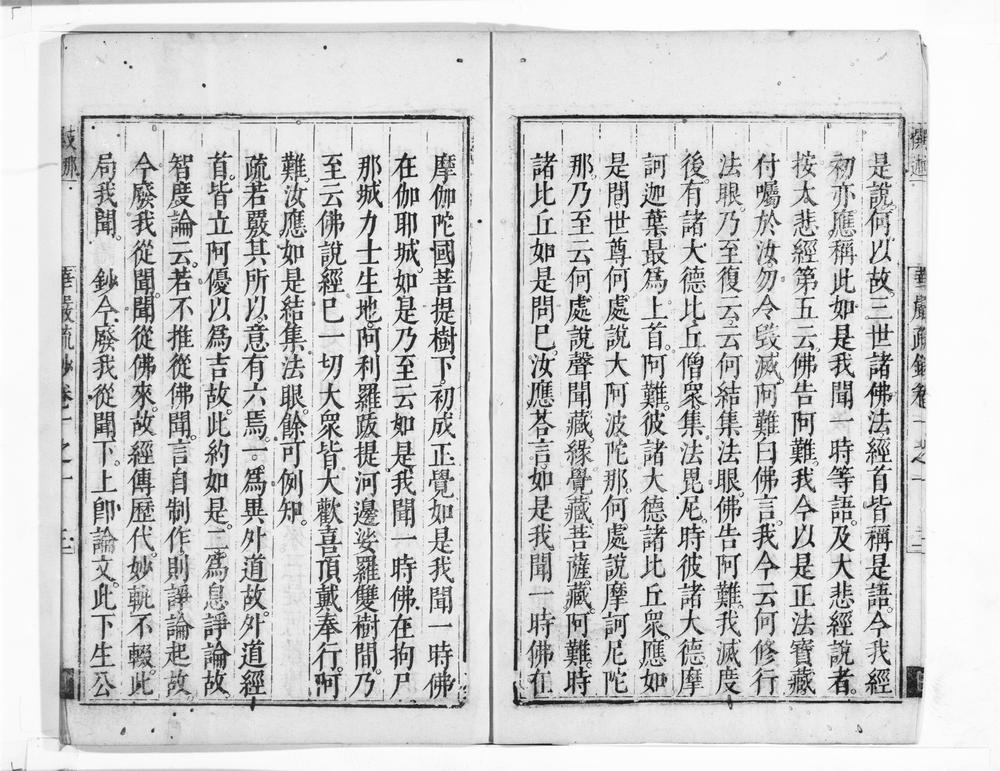 是說何以故。三世諸佛法經首皆稱是語。今我經
初亦應稱此如是我聞一時等語。及大悲經說者。
按大悲經第五云。佛告阿難。我今以是正法寶藏
付囑於汝。勿令毀滅。阿難曰佛言。我今云何修行
法眼。乃至復云云何結集法眼。佛告阿難。我滅度
後。有諸大德比丘僧衆集法毘尼。時彼諸大德摩
訶迦葉最爲上首。阿難。彼諸大德諸比丘衆。應如
是問。世尊何處說大阿波陀那。何處說摩訶尼陀
那。乃至云何處說聲聞藏。緣覺藏。菩薩藏。阿難。時
諸比丘如是問已。汝應荅言。如是我聞一時佛在
摩伽陀國菩提樹下。初成正覺。如是我聞一時佛
在伽耶城。如是乃至云如是我聞一時佛在拘尸
那城力士生地。阿利羅跋提河邊娑羅雙樹間。乃
至云佛說經已一切大衆皆大歡喜頂戴奉行。阿
難。汝應如是結集法眼。餘可例知。
疏若覈其所以。意有六焉。一爲異外道故。外道經
首。皆立阿優以爲吉故。此約如是。二爲息諍論故。
智度論云。若不推從佛聞。言自制作則諍論起故。
今廢我從聞。聞從佛來。故經傳歷代。妙軌不輟。此
局我聞。 鈔今廢我從聞下。上卽論文。此下生公
華嚴疏鈔卷一之一
華嚴疏鈔卷一之一